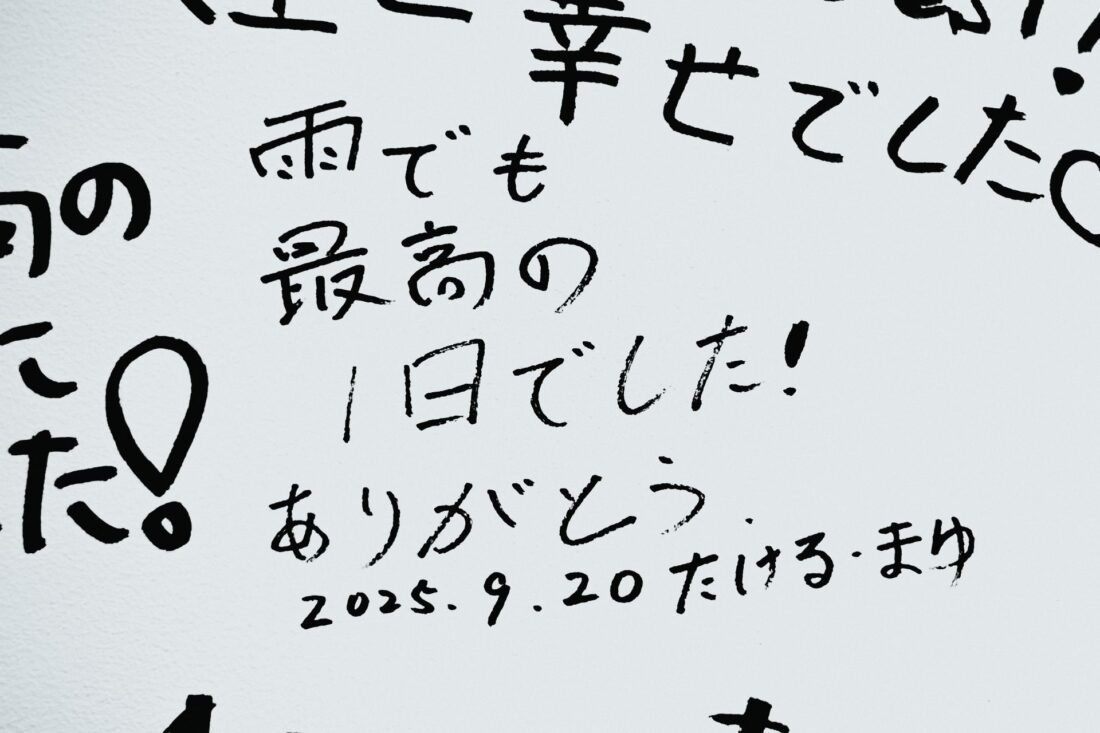 幸せでした
高の
た!
雨でも
最高の
1日でした!
ありがとう
2025.9.20 たける・まゆ